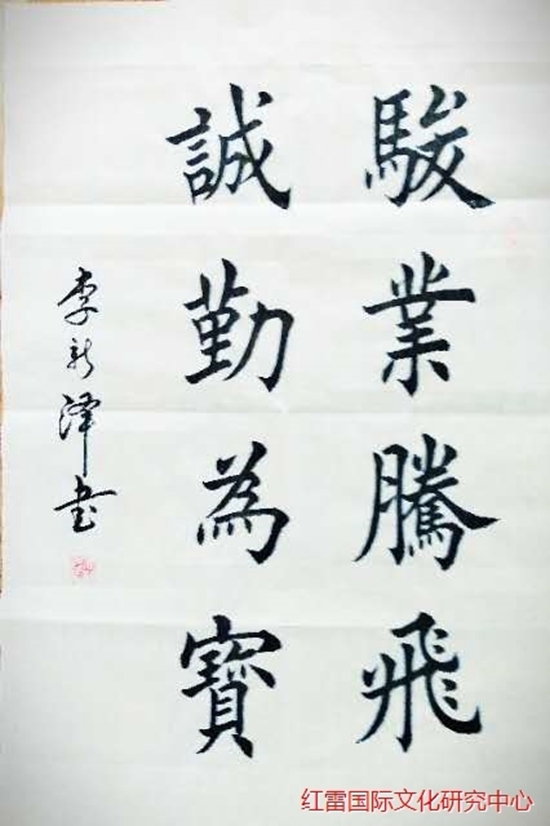 駿業騰飛
誠勤為寶
李新澤书
红雷国际文化研究中心